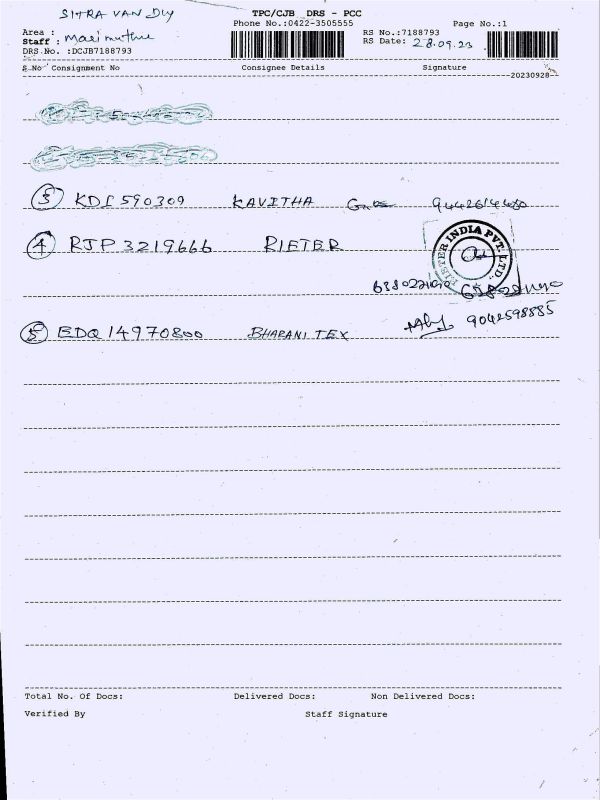 SITRA VAN DLY
TPC/CJB DRS - PCC
Phone No.:0422-3505555 Page No.:1
Area : RS No.:7188793
Staff : Marimuthu RS Date: 28.09.23
DRS.No. :DCJB7188793
S No Consignment No Consignee Details Signature
20230928
3 KDI 590309 KAVITHA 9442614480
4 RJP 3219666 RIETER
RIETER INDIA PVT. LTD.
5 EDQ 14970800 BHARANI TEX 9042598885
Total No. Of Docs: Delivered Docs: Non Delivered Docs:
Verified By Staff Signature